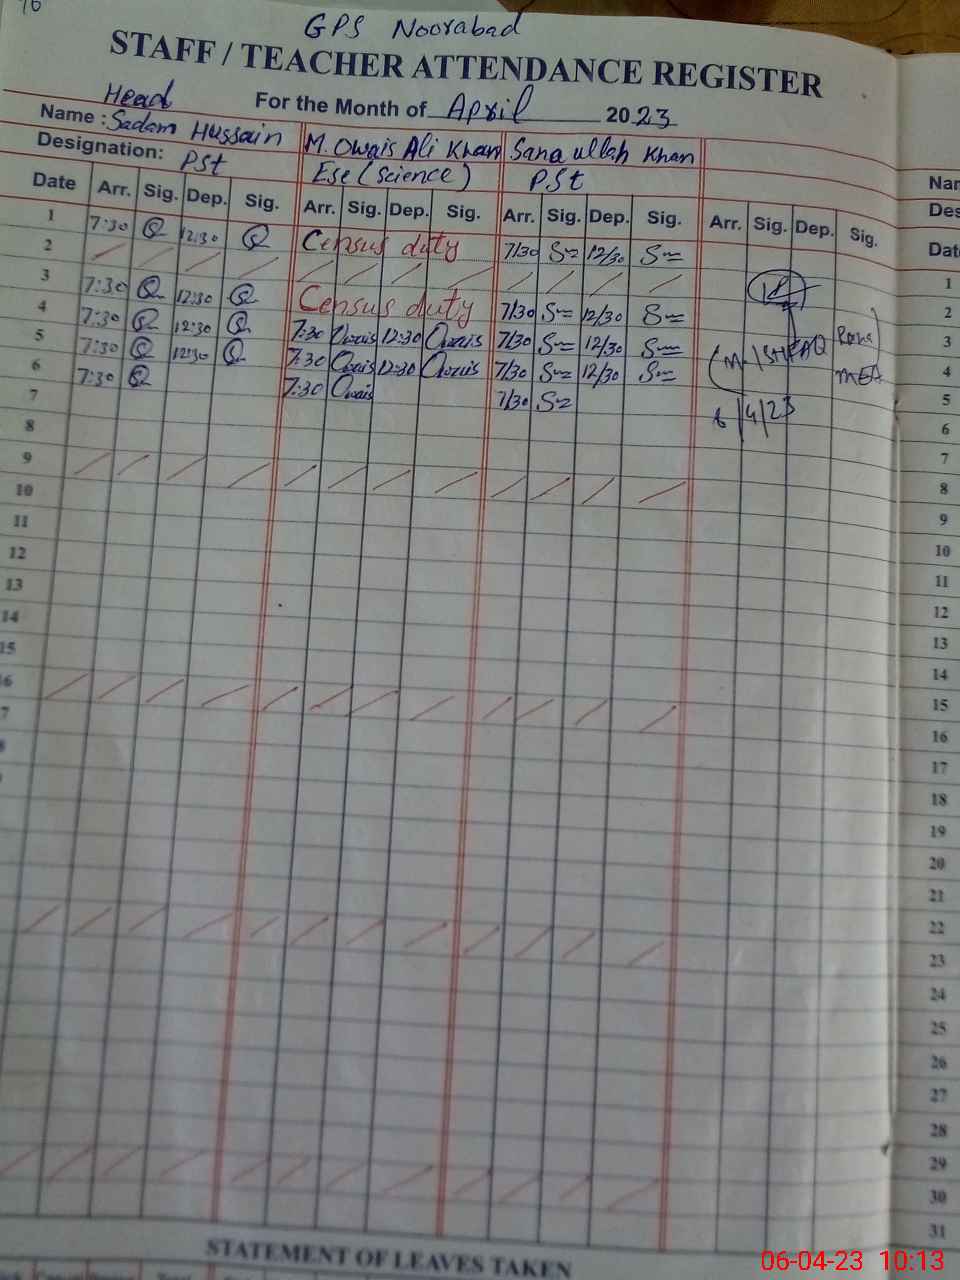 GPS Noorabad
STAFF / TEACHER ATTENDANCE REGISTER
For the Month of April 2023
Head
Name : Sadam Hussain M. Owais Ali Khan Sana ullah Khan
Designation: PSt Ese (Science) P.St
Date Arr. Sig. Dep. Sig. Arr. Sig. Dep. Sig. Arr. Sig. Dep. Sig. Arr. Sig. Dep. Sig.
1 7:30 12:30 Census duty 7/30 12/30
2
3 7:30 12:30 Census duty 7/30 12/30
4 7:30 12:30 7:30 Owais 12:30 Owais 7/30 12/30
5 7:30 12:30 7:30 Owais 12:30 Owais 7/30 12/30
6 7:30 7:30 Owais 7/30
7
8
9
10
11
12
13
14
15
6
7
(M. ISHFAQ Rana)
MEA
6/4/23
Nar
Des
Date
1
2
3
4
5
6
7
8
9
10
11
12
13
14
15
16
17
18
19
20
21
22
23
24
25
26
27
28
29
30
31
STATEMENT OF LEAVES TAKEN
06-04-23 10:13